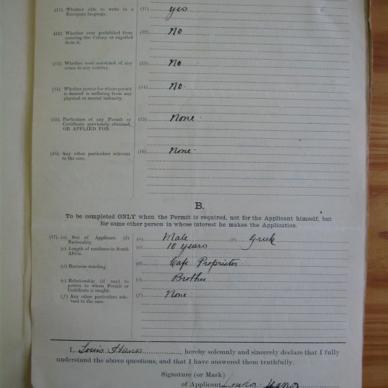 (11). Whether able to write in a European language. (11). yes
(12). Whether ever prohibited from entering the Colony or expelled from it. (12). No
(13). Whether ever convicted of any crime in any country. (13). No
(14). Whether person for whom permit is desired is suffering from any physical or mental infirmity. (14). No.
(15). Particulars of any Permit or Certificate previously obtained, OR APPLIED FOR. (15). None.
(16). Any other particulars relevant to the case. (16). None.
B.
To be completed ONLY when the Permit is required, not for the Applicant himself, but
for some other person in whose interest he makes the Application.
(17). (a) Sex of Applicant (b) Nationality. (a). Male (b). Greek
(c) Length of residence in South Africa. (c). 10 years
(d) Business standing (d). Cafe Proprietor
(e) Relationship (if any) to person to whom Permit or Certificate is sought. (e). Brother
(f) Any other particulars relevant to the case. (f). None
I, Louis hereby solemnly and sincerely declare that I fully
understand the above questions, and that I have answered them truthfully.
Signature (or Mark)
of Applicant